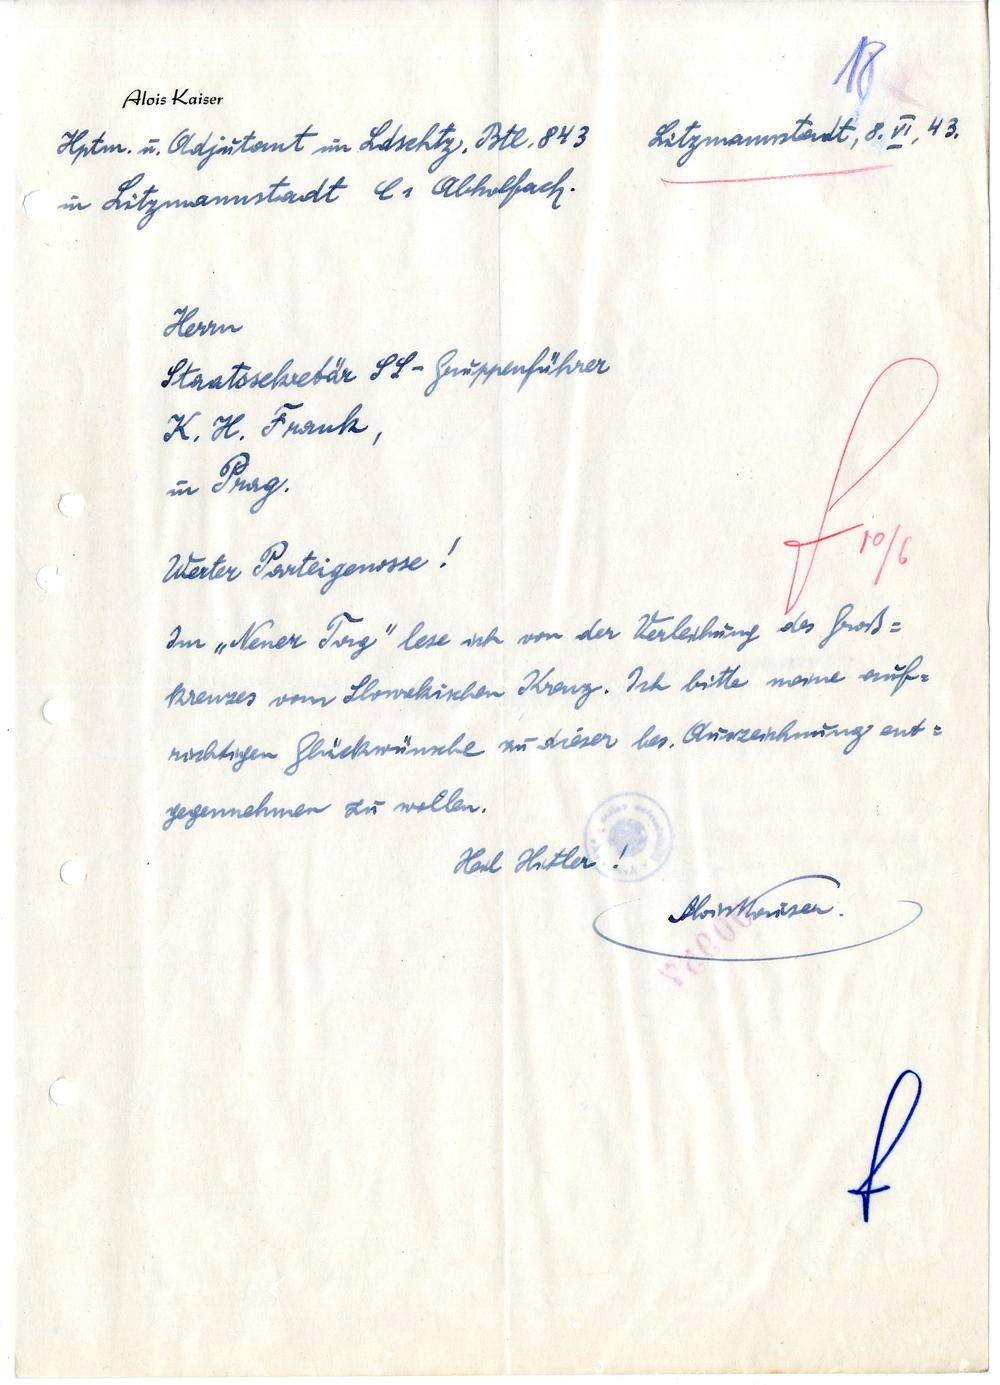 18
Alois Kaiser
Hptm. u. Adjutant im Ldschtz. Btl. 843
Litzmannstadt, 8. VI. 43.
in Litzmannstadt C 1 Abholfach.
Herrn
Staatssekretär SS-Gruppenführer
K. H. Frank,
in Prag.
10/6
Werter Parteigenosse!
Im „Neuer Tag" lese ich von der Verleihung des Groß=
kreuzes vom Slowakischen Kreuz. Ich bitte meine auf=
richtigen Glückwünsche zu dieser bes. Auszeichnung ent=
gegennehmen zu wollen.
Heil Hitler!
Alois Kaiser.